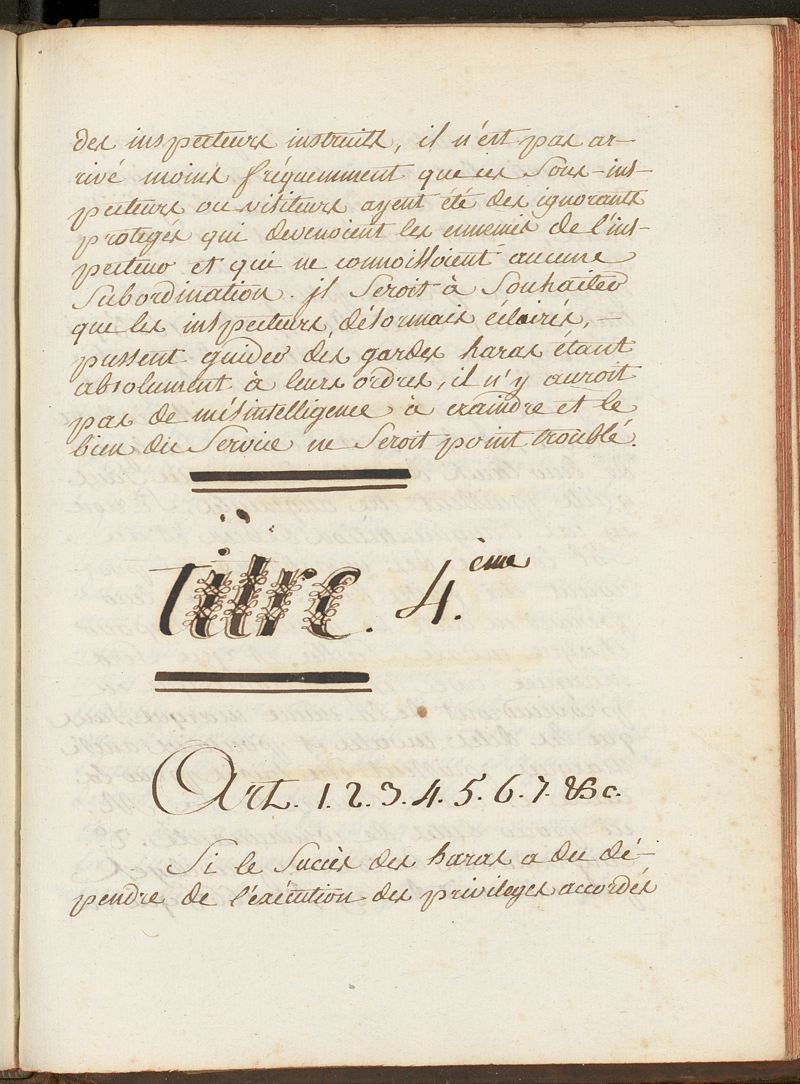 des inspecteurs instruits, il n'est pas ar-
rivé moins fréquemment que ces Sous-ins-
pecteurs ou visiteurs ayent été des ignorants
protegés qui devenoient les ennemis de l'ins-
pecteur et qui ne connoissoient aucune
Subordination. jl Seroit à Souhaiter
que les inspecteurs, désormais éclairés, -
pussent guider des gardes haras étant
absolument à leurs ordres, il n'y auroit
pas de mésintelligence à craindre et le
bien du Service ne Seroit point troublé.
Titre. 4.ème
Art. 1. 2. 3. 4. 5. 6. 7. &c.
Si le Succès des haras a du dé-
pendre de l'éxécution des privileges accordés